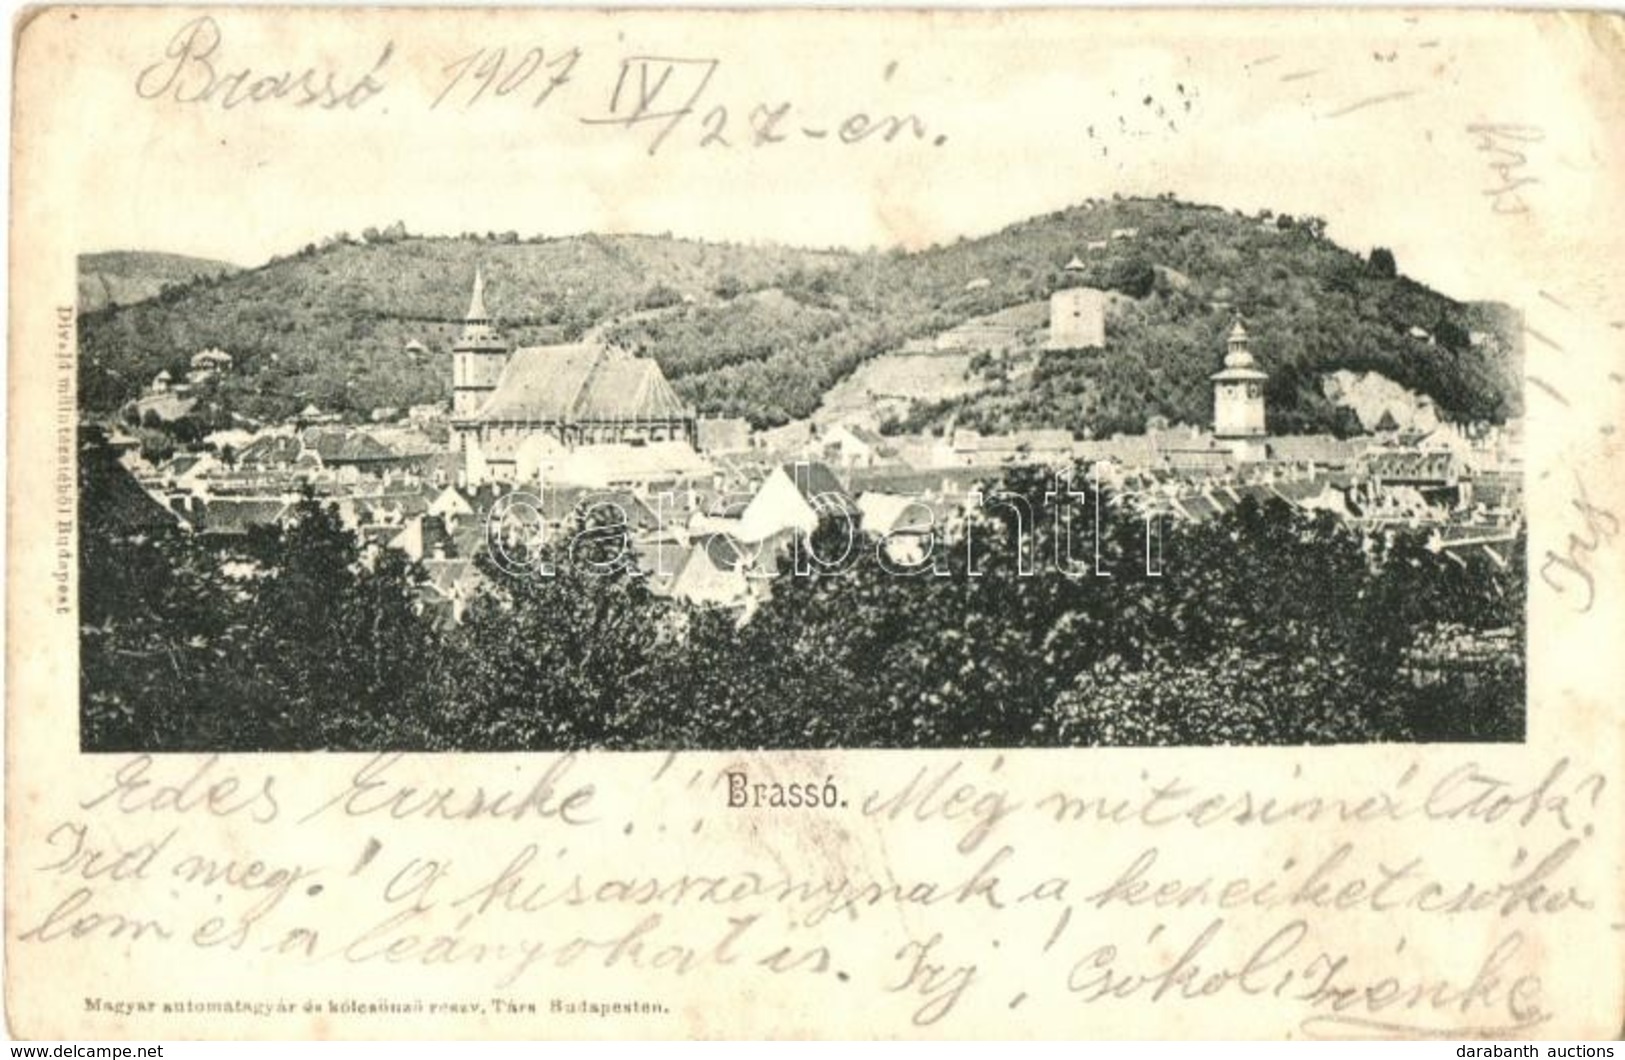 Brassó. 1907 IV/27-én.
Divald műintézetéből Budapest
darabanth
Brassó.
Edes Erzsike!!! Még mit csináltok?
Ird meg! A kisasszonynak a kezeiket csóko
lom és a leányokat is. Irj! Csókol Irénke
Magyar automatagyár és kölcsönző reszv. Társ Budapesten.
delcampe.net
darabanth auctions